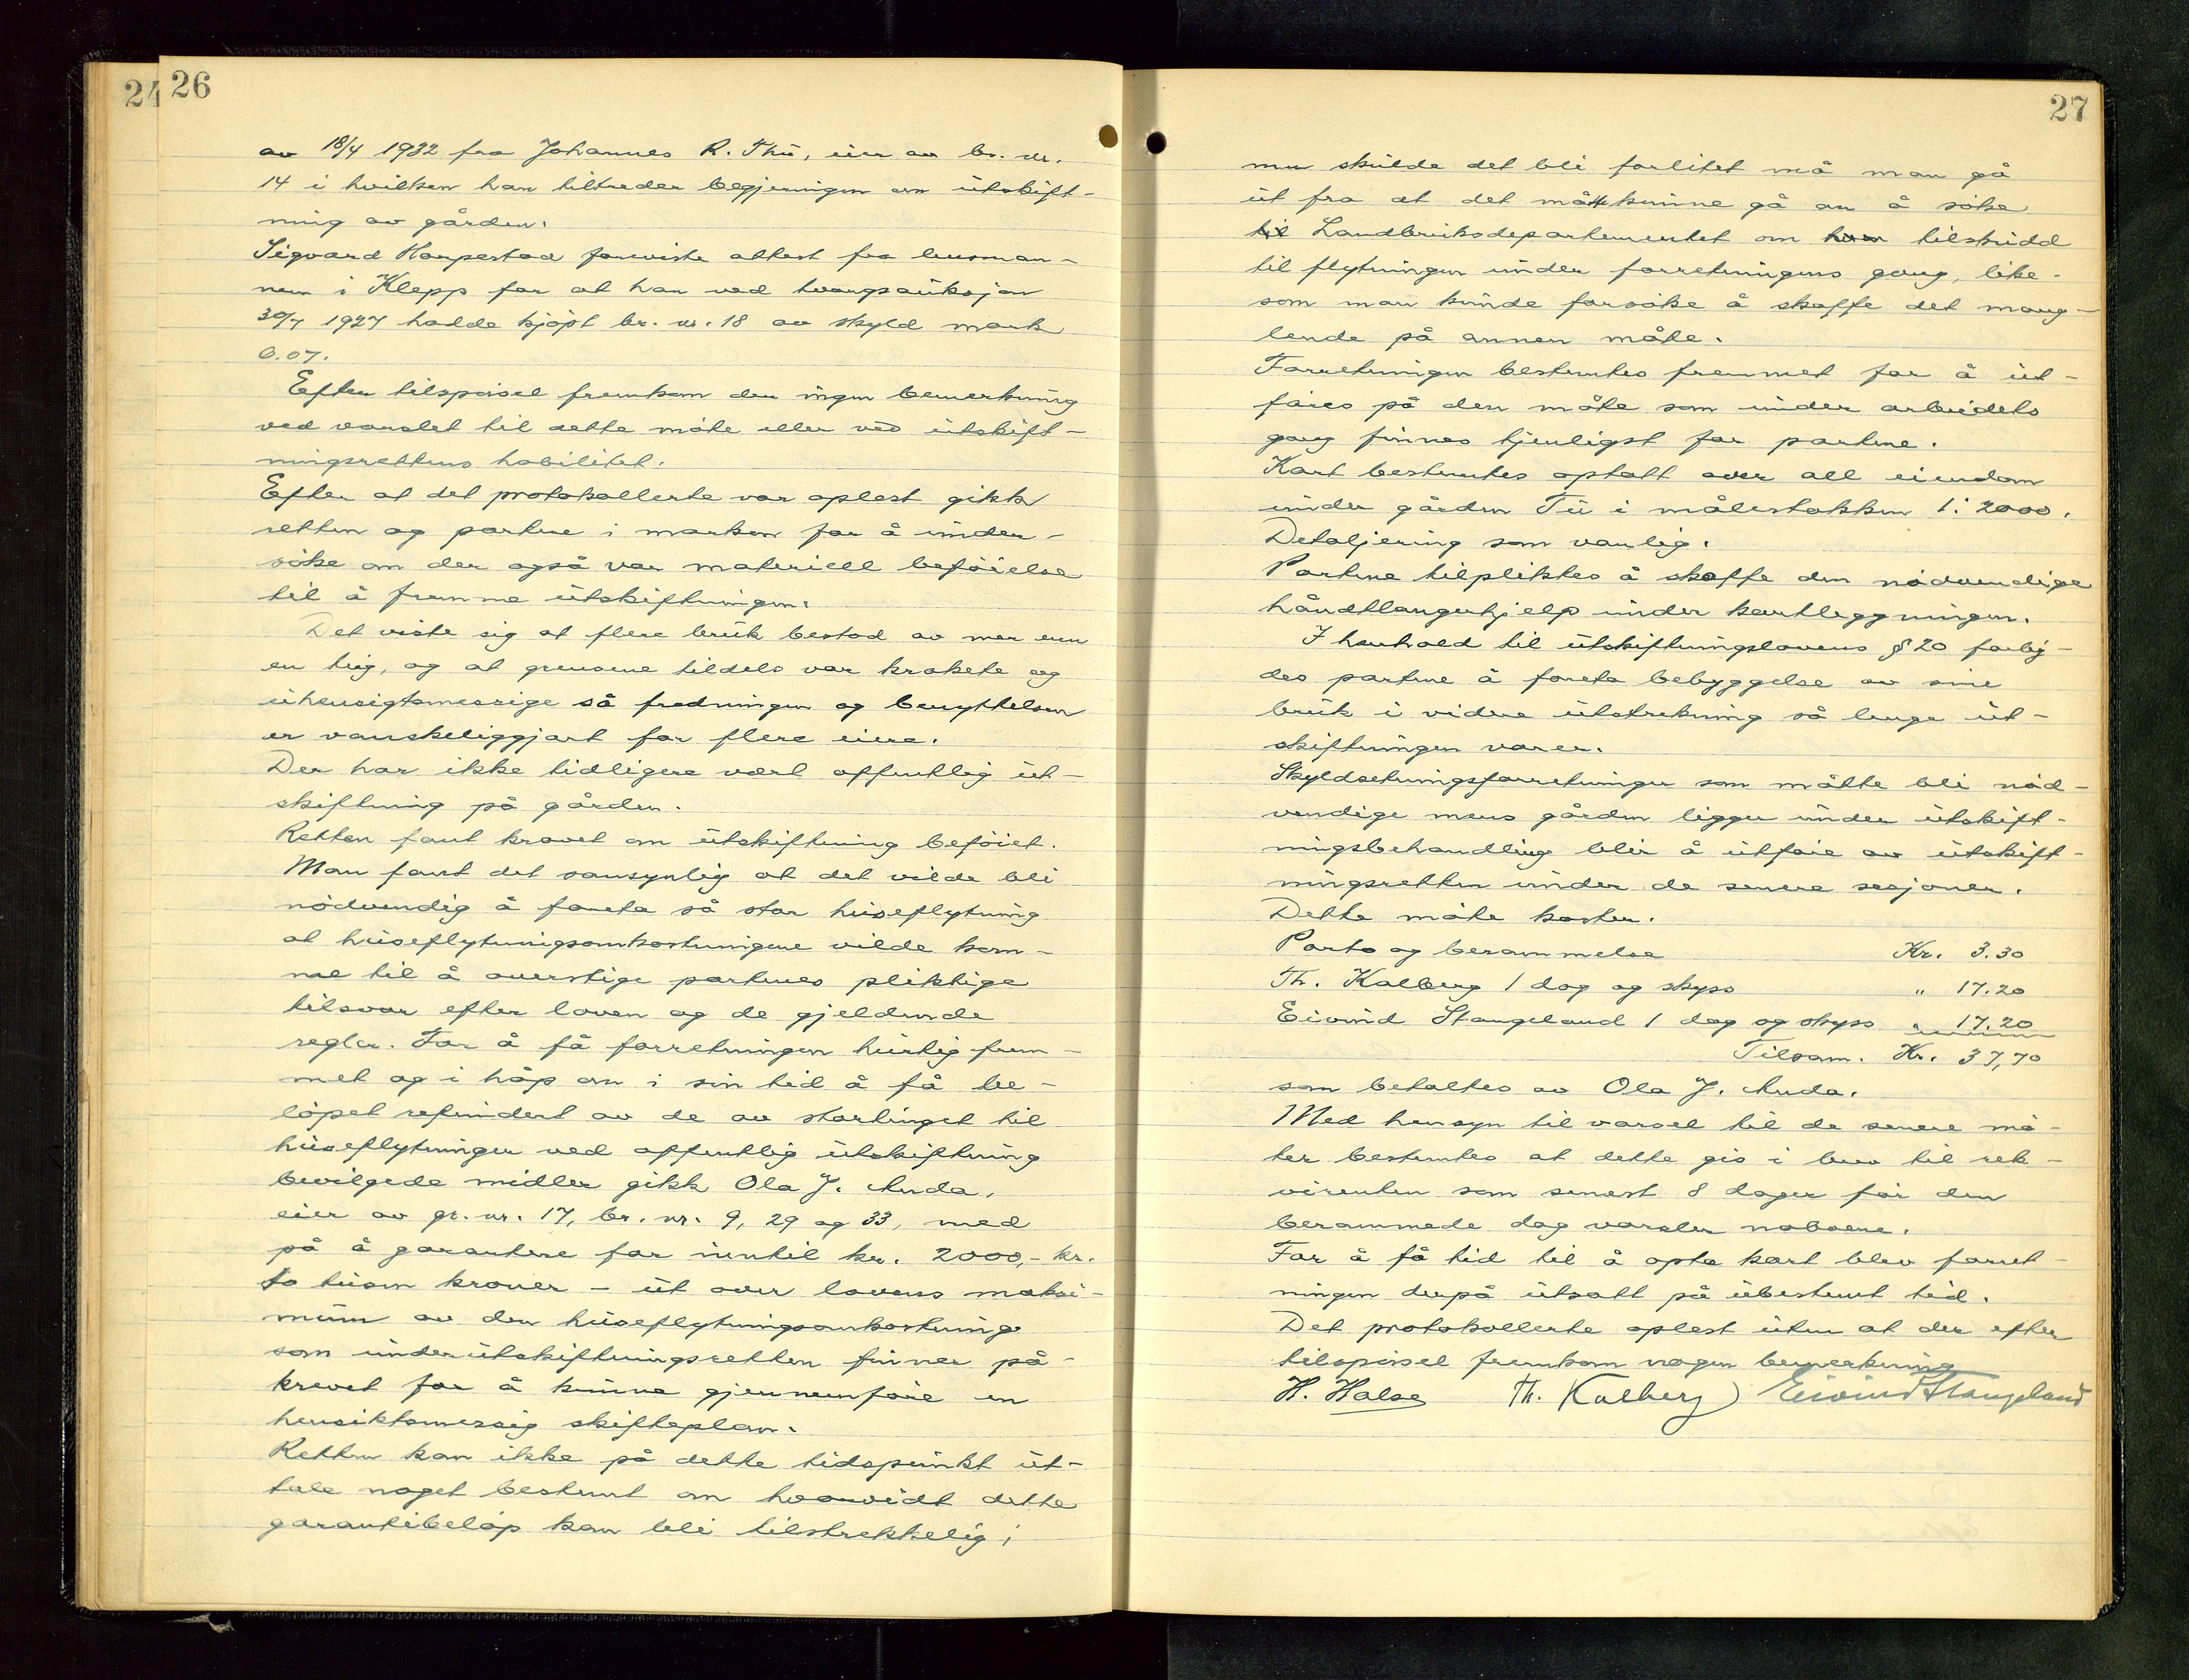 24 26
av 18/4 1932 fra Johannes R. Thu, eier av br. nr.
14 i hvilken han tiltreder begjeringen om utskift-
ning av gården.
Sigvard Harpestad foreviste attest fra lensman-
nen i Klepp for at han ved tvangsauksjon
30/7 1927 hadde kjöpt br. nr. 18 av skyld mark
0.07.
Efter tilspörsel fremkom der ingen bemerkning
ved varslet til dette möte eller ved utskift-
ningsrettens habilitet.
Efter at det protokollerte var oplest gikk
retten og partene i marken for å under-
söke om der også var materiell beföielse
til å fremme utskiftningen.
Det viste sig at flere bruk bestod av mer enn
en teig, og at grensene tildels var krokete og
uhensigtsmessige så fredningen og benyttelsen
er vanskeliggjort for flere eiere.
Der har ikke tidligere vært offentlig ut-
skiftning på gården.
Retten fant kravet om utskiftning beföiet.
Man fant det sansynlig at det vilde bli
nödvendig å foreta så stor huseflytning
at huseflytningsomkostningene vilde kom-
me til å overstige partenes pliktige
tilsvar efter loven og de gjeldende
regler. For å få forretningen hurtig frem-
met og i håp om i sin tid å få be-
löpet refundert av de av stortinget til
huseflytninger ved offentlig utskiftning
bevilgede midler gikk Ola J. Auda,
eier av gr. nr. 17, br. nr. 9, 29 og 33, med
på å garantere for inntil kr. 2000,- kr.
to tusen kroner - ut over lovens maksi-
mum av den huseflytningsomkostning
som under utskiftningsretten finner på-
krevet for å kunne gjennemföre en
hensiktsmessig skifteplan.
Retten kan ikke på dette tidspunkt ut-
tale noget bestemt om hvorvidt dette
garantibelöp kan bli tilstrekkelig,
27
men skulde det bli forlitet må man gå
ut fra at det måtte kunne gå an å söke
til Landbruksdepartementet om tilskudd
til flytningen under forretningens gang, like-
som man kunde forsöke å skaffe det mang-
lende på annen måte.
Forretningen bestemtes fremmet for å ut-
föres på den måte som under arbeidets
gang finnes tjenligst for partene.
Kart bestemtes optatt over all eiendom
under gården Tu i målestokken 1:2000.
Detaljering som vanlig.
Partene tilpliktes å skaffe den nödvendige
håndtlangerhjelp under kartleggningen.
I henhold til utskiftningslovens § 20 forby-
des partene å foreta bebyggelse av sine
bruk i videre utstrekning så lenge ut-
skiftningen varer.
Skyldsetningsforretninger som måtte bli nöd-
vendige mens gården ligger under utskift-
ningsbehandling blir å utföre av utskift-
ningsretten under de senere sesjoner.
Dette möte koster.
Porto og berammelse Kr. 3.30
Th. Kalberg 1 dag og skyss " 17.20
Eivind Stangeland 1 dag og skyss " 17.20
Tilsam. Kr. 37,70
som betaltes av Ola J. Auda.
Med hensyn til varsel til de senere mö-
ter bestemtes at dette gis i brev til rek-
virenten som senest 8 dager för den
berammede dag varsler naboene.
For å få tid til å opta kart blev forret-
ningen derpå utsatt på ubestemt tid.
Det protokollerte oplest uten at der efter
tilspörsel fremkom nogen bemerkning
H. Halse Th. Kalberg Eivind Stangeland